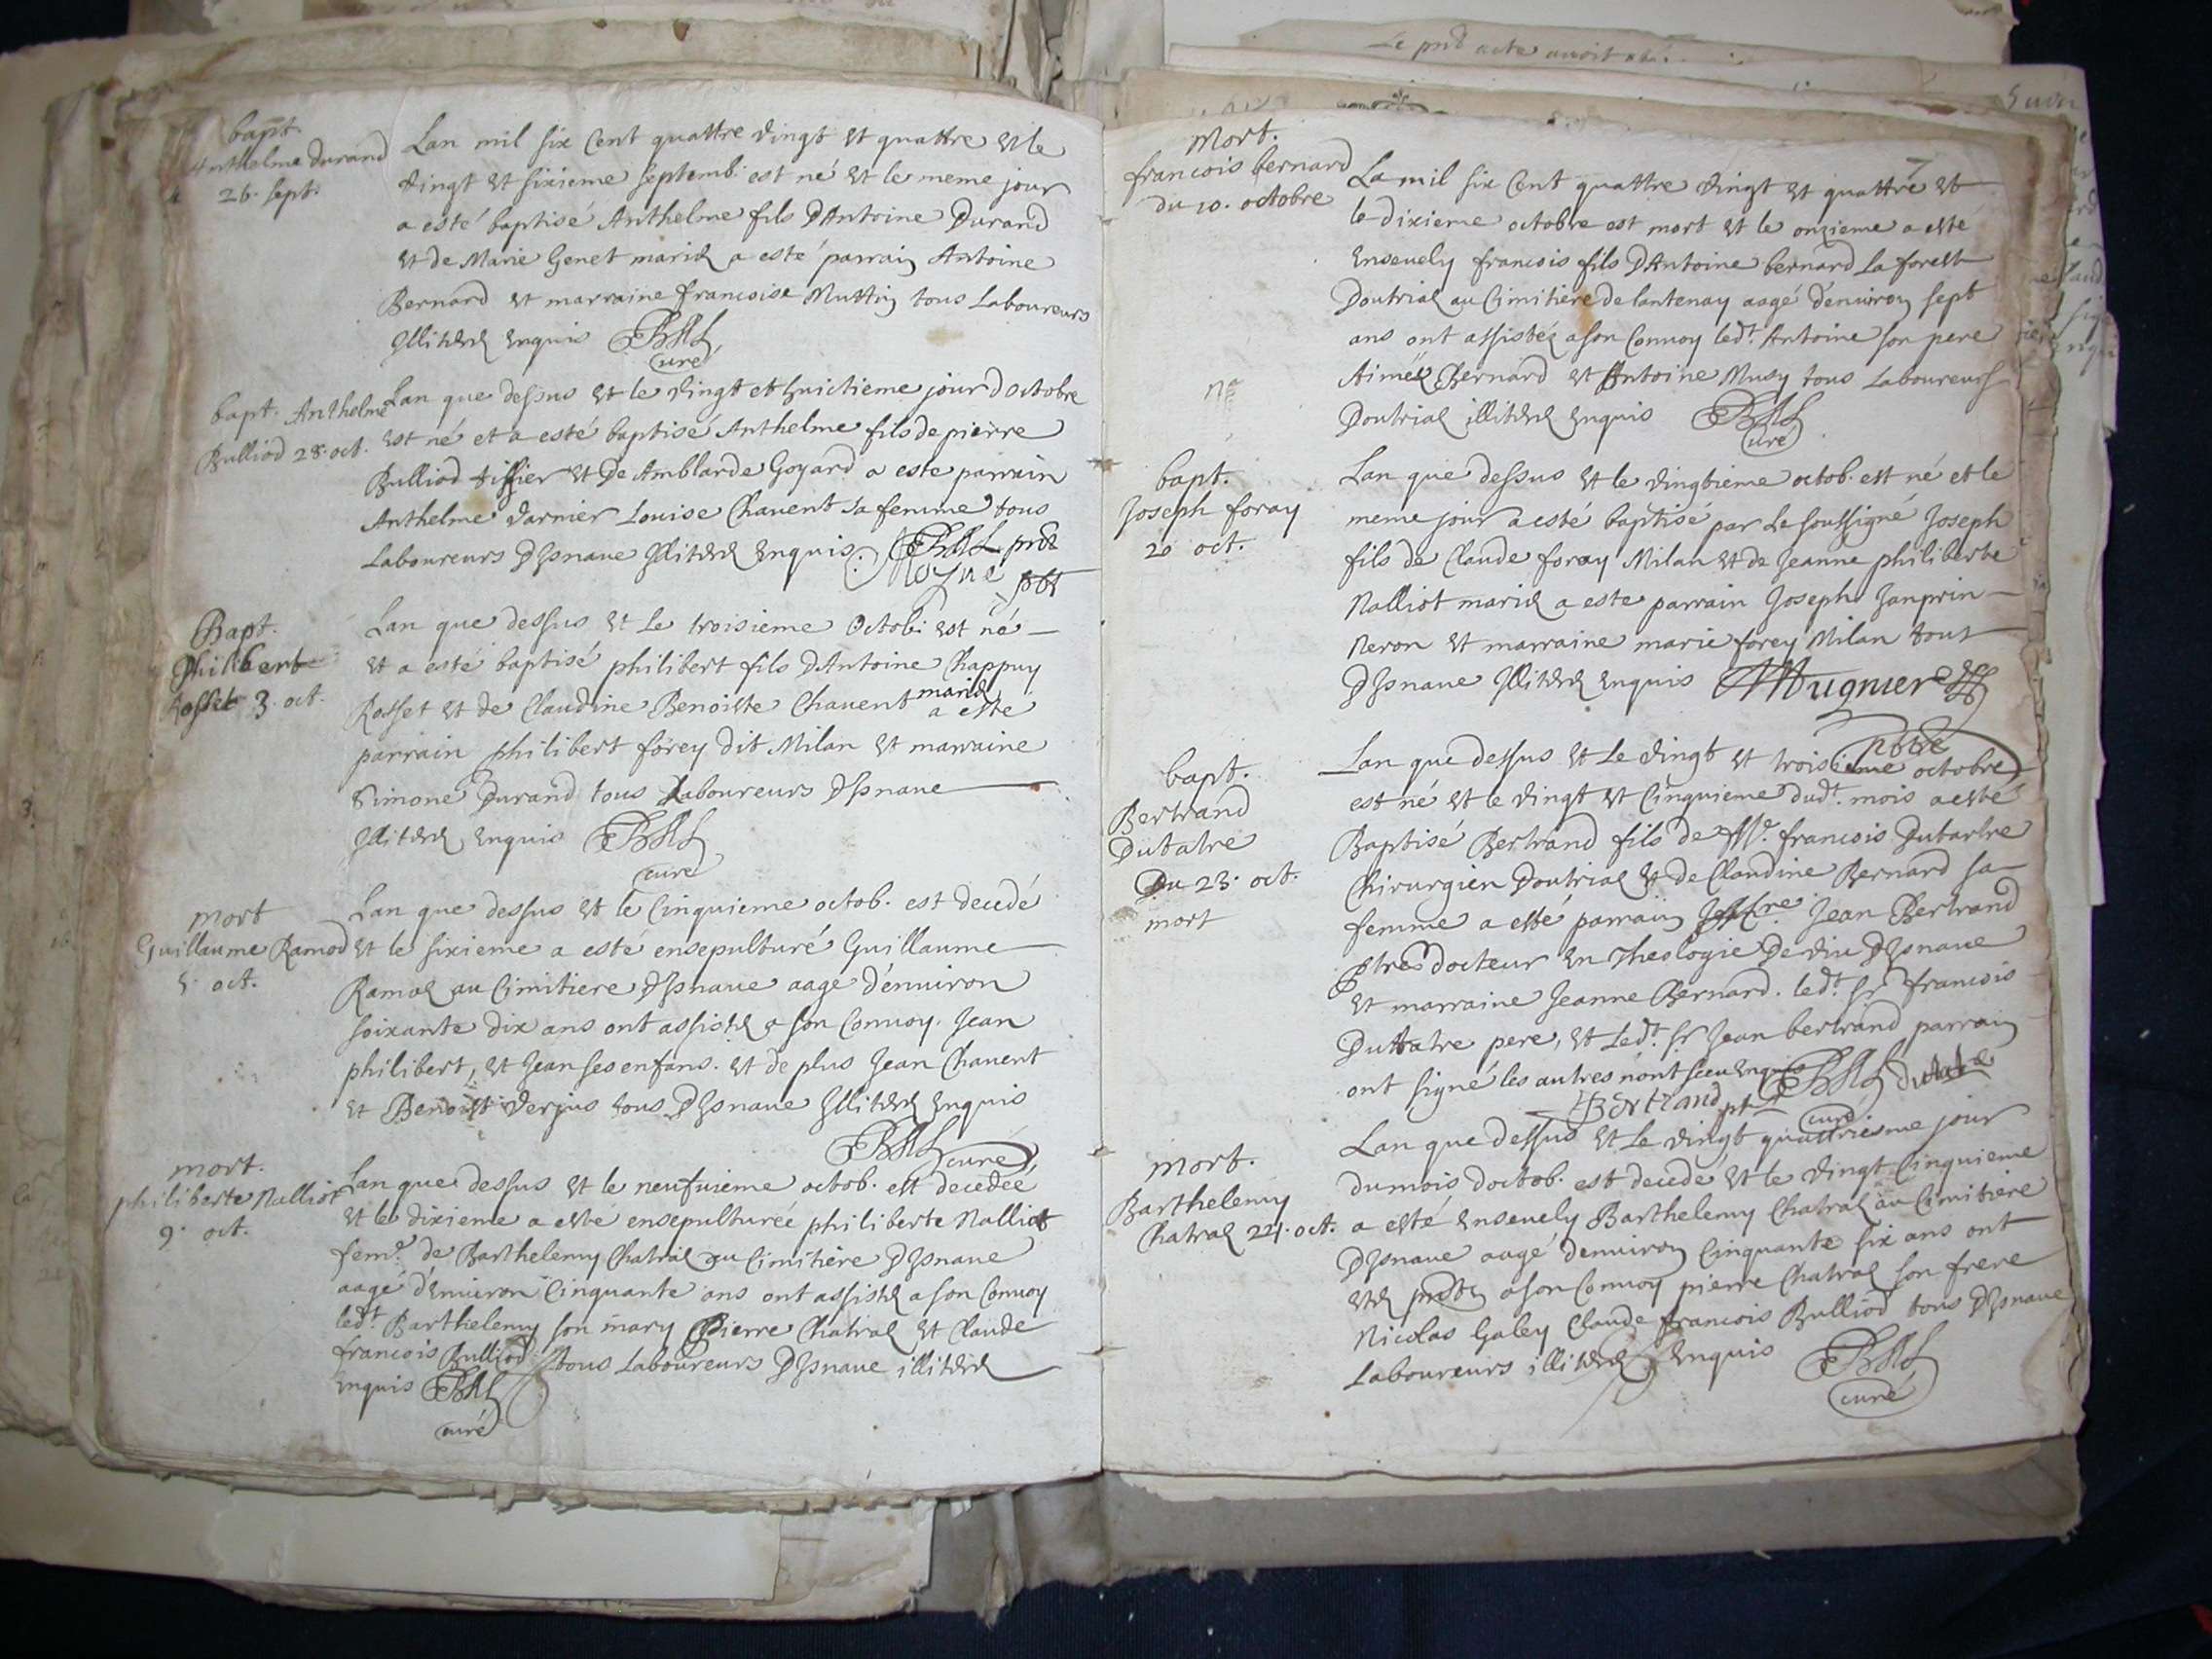 bapt.
Anthelme durand
26. sept.
Lan mil six Cent quattre vingt et quattre et le
vingt et sixieme septemb. est né et le meme jour
a esté baptisé Anthelme fils D'Antoine Durand
et de Marie Genet mariez a esté parrain Antoine
Bernard et marraine francoise Muttin tous Laboureurs
Illiterez enquis
curé
bapt. Anthelme
Bulliod 28. oct.
Lan que dessus et le vingt et huictieme jour doctobre
est né et a esté baptisé Anthelme fils de pierre
Bulliod tissier et De Amblarde Goyard a este parrain
Anthelme varnier Louise Chavent sa femme tous
Laboureurs DIsnave Illiterez enquis.
Moyne pbt
Bapt.
Philibert
Rosset 3. oct.
Lan que dessus et Le troisieme Octob. est né
et a esté baptisé philibert fils D'Antoine Chappuy
Rosset et de Claudine Benoiste Chavent mariez a este
parrain philibert forey dit Milan et marraine
Simone Durand tous Laboureurs DIsnave
Illiterez enquis
curé
mort
Guillaume Ramod
5. oct.
Lan que dessus et le Cinquieme octob. est decedé
et le sixieme a esté ensepulturé Guillaume
Ramoz au Cimitiere DIsnave aagé d'environ
soixante dix ans ont assistez a son Convoy. Jean
philibert, et Jean ses enfans. et de plus Jean Chavent
et Benoist Verjus tous DIsnave Illiterez enquis
curé
mort.
philiberte Nalliot
9. oct.
Lan que dessus et le neufvieme octob. est decedée
et le dixieme a esté ensepulturée philiberte Nalliot
feme. de Barthelemy Chatral au Cimitiere DIsnave
aagé d'environ Cinquante ans ont assistez a son Convoy
ledt. Barthelemy son mary Pierre Chatral et Claude
francois Bulliod tous Laboureurs DIsnave illiterez
enquis
curé
Le pnt acte avoit
Mort.
francois bernard
du 10. octobre
7
La mil six Cent quattre vingt et quattre et
le dixieme octobre est mort et le onzieme a esté
Ensevely francois fils D'Antoine bernard La forest
Doutriaz au Cimitiere de lantenay aagé d'environ sept
ans ont assistéz a son Convoy ledt. Antoine son pere
Aimé Bernard et Antoine Musy tous Laboureurs
Doutriaz illiterez enquis
curé
bapt.
Joseph foray
20 oct.
Lan que dessus et le vingtieme octob. est né et le
meme jour a esté baptisé par Le soussigné Joseph
fils de Claude foray Milan et de Jeanne philiberte
Nalliot mariez a este parrain Joseph Janprin
Neron et marraine marie forey Milan tout
DIsnave Illiterez enquis Mugnier
bapt.
Bertrand
Dutatre
Du 23. oct.
mort
Lan que dessus et Le vingt et troisieme octobre
est né et le vingt et Cinquieme dudt. mois a esté
Baptisé Bertrand fils de Me. francois Dutartre
Chirurgien Doutriaz et de Claudine Bernard sa
femme a esté parrain Jean Bertrand
ptre docteur en Theologie DIsnave
et marraine Jeanne Bernard. ledt. sr francois
Duttatre pere, et Ledt. sr Jean bertrand parrain
ont signé les autres n'ont sceu enquis
Bertrand
curé
Mort.
Barthelemy
Chatral 24. oct.
Lan que dessus et Le vingt quattriesme jour
du mois doctob. est decedé et le vingt Cinquieme
a esté Ensevely Barthelemy Chatral au Cimitiere
DIsnave aagé denviron Cinquante six ans ont
a son Convoy pierre Chatral son frere
Nicolas Galey Claude francois Bulliod tous DIsnave
Laboureurs illiterez enquis
curé